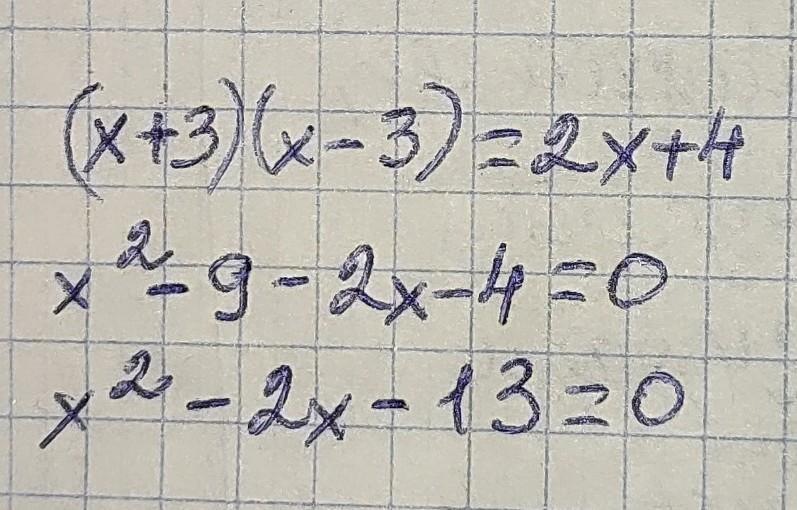 (x+3)(x-3)=2x+4
x²-9-2x-4=0
x²-2x-13=0